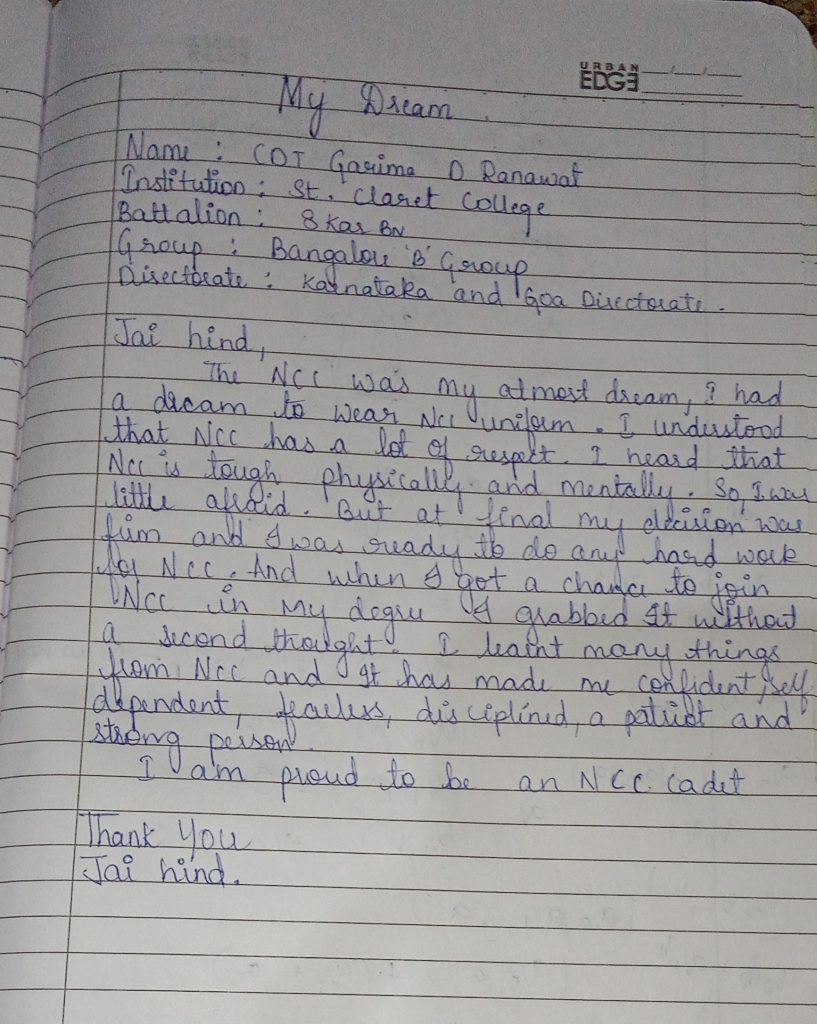 URBAN
EDGE
My Dream.
Name : CDT Garima D Ranawat
Institution : St. Claret College
Battalion : 8 Kar BN
Group : Bangalore 'B' Group
Directorate : Karnataka and Goa Directorate.
Jai hind,
The NCC was my atmost dream, I had
a dream to wear NCC uniform. I understood
that NCC has a lot of respect. I heard that
NCC is tough physically and mentally. So, I was
little afraid. But at final my decision was
firm and I was ready to do any hard work
for NCC. And when I got a chance to join
NCC in my degree I grabbed it without
a second thought. I learnt many things
from NCC and It has made me confident, self
dependent, fearless, disciplined, a patriot and
strong person.
I am proud to be an NCC cadet
Thank You
Jai hind.